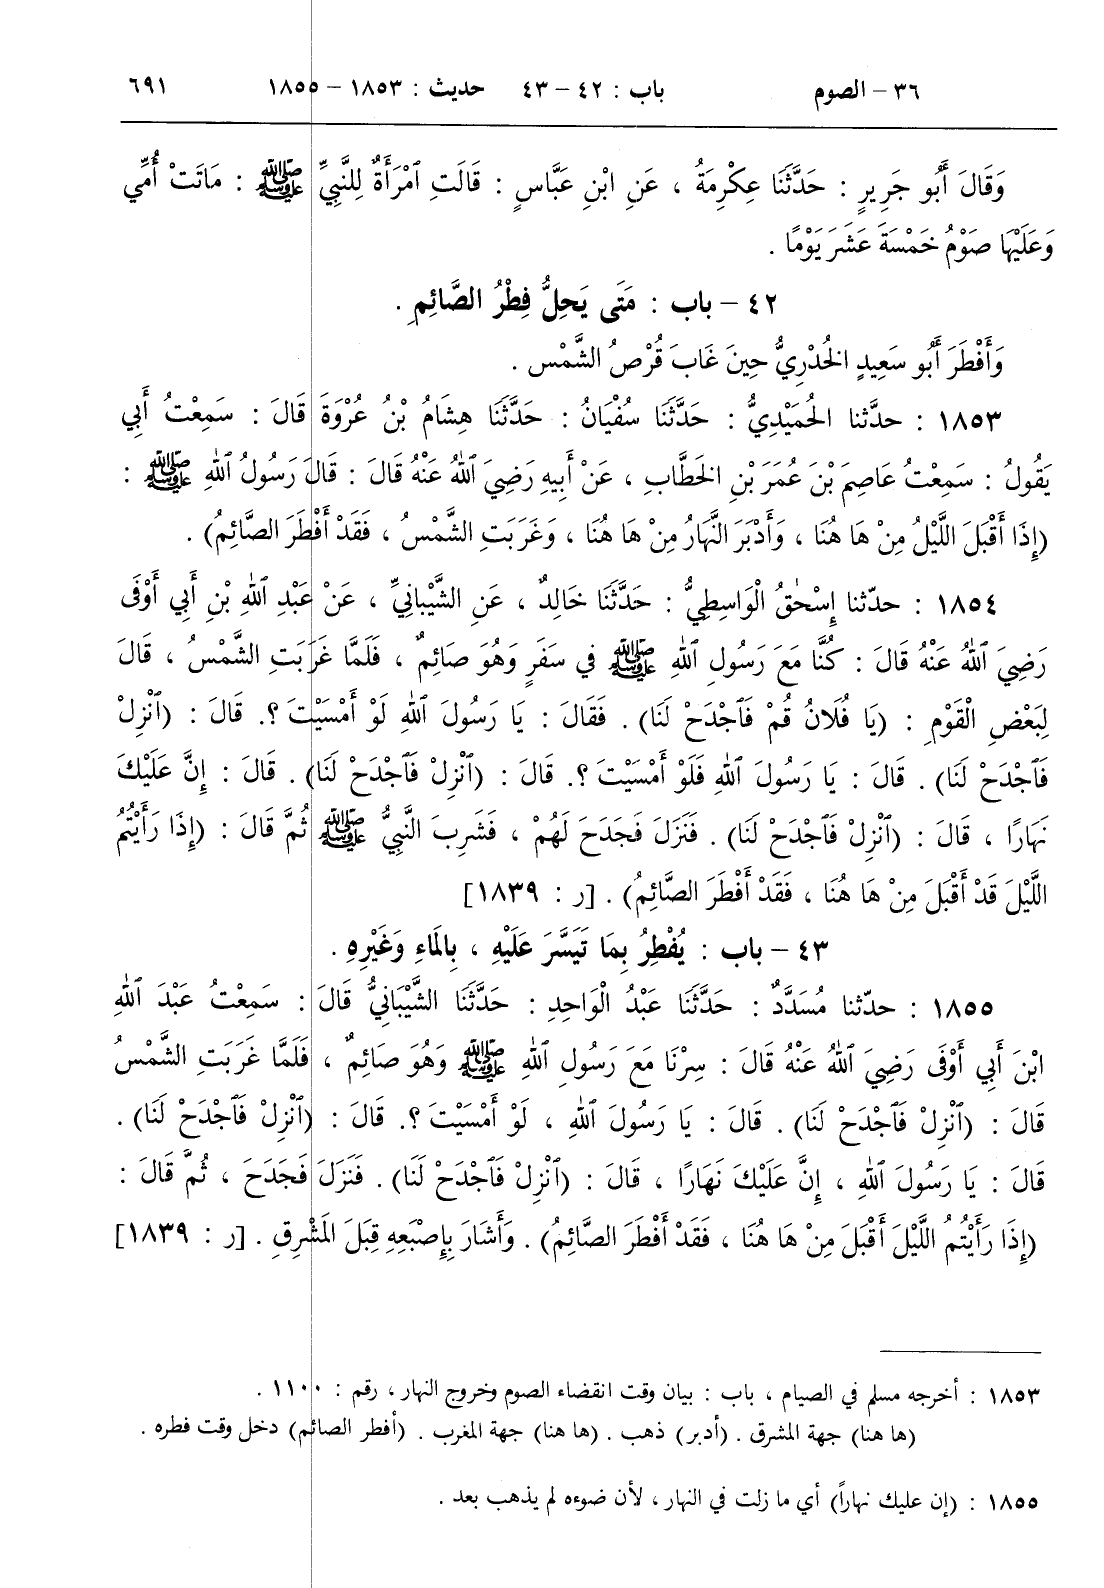 ٣٦ – الصوم باب : ٤٢ – ٤٣ حديث : ١٨٥٣ – ١٨٥٥ ٦٩١
وَقَالَ أَبُو جَرِيرٍ : حَدَّثَنَا عِكْرِمَةُ ، عَنِ ابْنِ عَبَّاسٍ : قَالَتِ ٱمْرَأَةٌ لِلنَّبِيِّ ﷺ : مَاتَتْ أُمِّي
وَعَلَيْهَا صَوْمُ خَمْسَةَ عَشَرَ يَوْمًا .
٤٢ – باب : مَتَى يَحِلُّ فِطْرُ الصَّائِمِ .
وَأَفْطَرَ أَبُو سَعِيدٍ الخُدْرِيُّ حِينَ غَابَ قُرْصُ الشَّمْسِ .
١٨٥٣ : حدَّثنا الحُمَيْدِيُّ : حَدَّثَنَا سُفْيَانُ : حَدَّثَنَا هِشَامُ بْنُ عُرْوَةَ قَالَ : سَمِعْتُ أَبِي
يَقُولُ : سَمِعْتُ عَاصِمَ بْنَ عُمَرَ بْنِ الخَطَّابِ ، عَنْ أَبِيهِ رَضِيَ ٱللهُ عَنْهُ قَالَ : قَالَ رَسُولُ ٱللهِ ﷺ :
(إِذَا أَقْبَلَ اللَّيْلُ مِنْ هَا هُنَا ، وَأَدْبَرَ النَّهَارُ مِنْ هَا هُنَا ، وَغَرَبَتِ الشَّمْسُ ، فَقَدْ أَفْطَرَ الصَّائِمُ) .
١٨٥٤ : حدّثنا إِسْحٰقُ الْوَاسِطِيُّ : حَدَّثَنَا خَالِدٌ ، عَنِ الشَّيْبَانِيِّ ، عَنْ عَبْدِ ٱللهِ بْنِ أَبِي أَوْفَى
رَضِيَ ٱللهُ عَنْهُ قَالَ : كُنَّا مَعَ رَسُولِ ٱللهِ ﷺ فِي سَفَرٍ وَهُوَ صَائِمٌ ، فَلَمَّا غَرَبَتِ الشَّمْسُ ، قَالَ
لِبَعْضِ الْقَوْمِ : (يَا فُلَانُ قُمْ فَٱجْدَحْ لَنَا) . فَقَالَ : يَا رَسُولَ ٱللهِ لَوْ أَمْسَيْتَ ؟. قَالَ : (ٱنْزِلْ
فَٱجْدَحْ لَنَا) . قَالَ : يَا رَسُولَ ٱللهِ فَلَوْ أَمْسَيْتَ ؟. قَالَ : (ٱنْزِلْ فَٱجْدَحْ لَنَا) . قَالَ : إِنَّ عَلَيْكَ
نَهَارًا ، قَالَ : (ٱنْزِلْ فَٱجْدَحْ لَنَا) . فَنَزَلَ فَجَدَحَ لَهُمْ ، فَشَرِبَ النَّبِيُّ ﷺ ثُمَّ قَالَ : (إِذَا رَأَيْتُمُ
اللَّيْلَ قَدْ أَقْبَلَ مِنْ هَا هُنَا ، فَقَدْ أَفْطَرَ الصَّائِمُ) . [ر : ١٨٣٩]
٤٣ – باب : يُفْطِرُ بِمَا تَيَسَّرَ عَلَيْهِ ، بِالمَاءِ وَغَيْرِهِ .
١٨٥٥ : حدّثنا مُسَدَّدٌ : حَدَّثَنَا عَبْدُ الْوَاحِدِ : حَدَّثَنَا الشَّيْبَانِيُّ قَالَ : سَمِعْتُ عَبْدَ ٱللهِ
ابْنَ أَبِي أَوْفَى رَضِيَ ٱللهُ عَنْهُ قَالَ : سِرْنَا مَعَ رَسُولِ ٱللهِ ﷺ وَهُوَ صَائِمٌ ، فَلَمَّا غَرَبَتِ الشَّمْسُ
قَالَ : (ٱنْزِلْ فَٱجْدَحْ لَنَا) . قَالَ : يَا رَسُولَ ٱللهِ ، لَوْ أَمْسَيْتَ ؟. قَالَ : (ٱنْزِلْ فَٱجْدَحْ لَنَا) .
قَالَ : يَا رَسُولَ ٱللهِ ، إِنَّ عَلَيْكَ نَهَارًا ، قَالَ : (ٱنْزِلْ فَٱجْدَحْ لَنَا) . فَنَزَلَ فَجَدَحَ ، ثُمَّ قَالَ :
(إِذَا رَأَيْتُمُ اللَّيْلَ أَقْبَلَ مِنْ هَا هُنَا ، فَقَدْ أَفْطَرَ الصَّائِمُ) . وَأَشَارَ بِإِصْبَعِهِ قِبَلَ المَشْرِقِ . [ر : ١٨٣٩]
١٨٥٣ : أخرجه مسلم في الصيام ، باب : بيان وقت انقضاء الصوم وخروج النهار ، رقم : ١١٠٠ .
(ها هنا) جهة المشرق . (أدبر) ذهب . (ها هنا) جهة المغرب . (أفطر الصائم) دخل وقت فطره .
١٨٥٥ : (إن عليك نهاراً) أي ما زلت في النهار ، لأن ضوءه لم يذهب بعد .